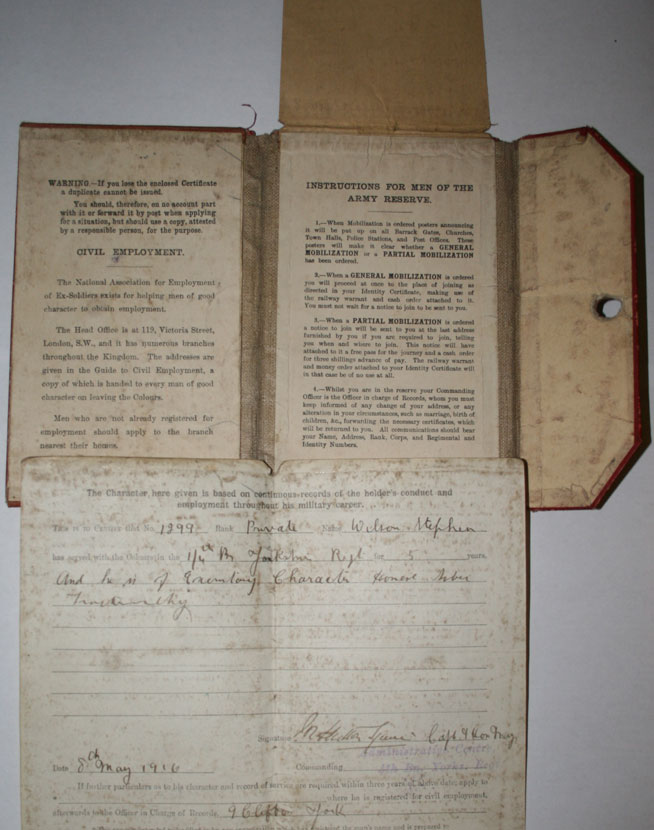 WARNING.—If you lose the enclosed Certificate
a duplicate cannot be issued.
You should, therefore, on no account part
with it or forward it by post when applying
for a situation, but should use a copy, attested
by a responsible person, for the purpose.
CIVIL EMPLOYMENT.
The National Association for Employment
of Ex-Soldiers exists for helping men of good
character to obtain employment.
The Head Office is at 119, Victoria Street,
London, S.W., and it has numerous branches
throughout the Kingdom. The addresses are
given in the Guide to Civil Employment, a
copy of which is handed to every man of good
character on leaving the Colours.
Men who are not already registered for
employment should apply to the branch
nearest their homes.
INSTRUCTIONS FOR MEN OF THE
ARMY RESERVE.
1.—When Mobilization is ordered posters announcing
it will be put up on all Barrack Gates, Churches,
Town Halls, Police Stations, and Post Offices. These
posters will make it clear whether a GENERAL
MOBILIZATION or a PARTIAL MOBILIZATION
has been ordered.
2.—When a GENERAL MOBILIZATION is ordered
you will proceed at once to the place of joining as
directed in your Identity Certificate, making use of
the railway warrant and cash order attached to it.
You must not wait for a notice to join to be sent to you.
3.—When a PARTIAL MOBILIZATION is ordered
a notice to join will be sent to you at the last address
furnished by you if you are required to join, telling
you when and where to join. This notice will have
attached to it a free pass for the journey and a cash order
for three shillings advance of pay. The railway warrant
and money order attached to your Identity Certificate will
in that case be of no use at all.
4.—Whilst you are in the reserve your Commanding
Officer is the Officer in charge of Records, whom you must
keep informed of any change of your address, or any
alteration in your circumstances, such as marriage, birth of
children, &c., forwarding the necessary certificates, which
will be returned to you. All communications should bear
your Name, Address, Rank, Corps, and Regimental and
Identity Numbers.
The Character here given is based on continuous records of the holder's conduct and
employment throughout his military career.
This is to Certify that No. 1299 Rank Private Name Wilson Stephen
has served with the Colours in the Bn Yorkshire Regt for 5 years,
And he is of Exemplary Character Honest Sober
Trustworthy
Signature Capt
Administrative Centre
Date 8th May 1916 Commanding
If further particulars as to his character and record of service are required within three years of above date, apply to
where he is registered for civil employment,
afterwards to the Officer in Charge of Records, 9 Clifton York